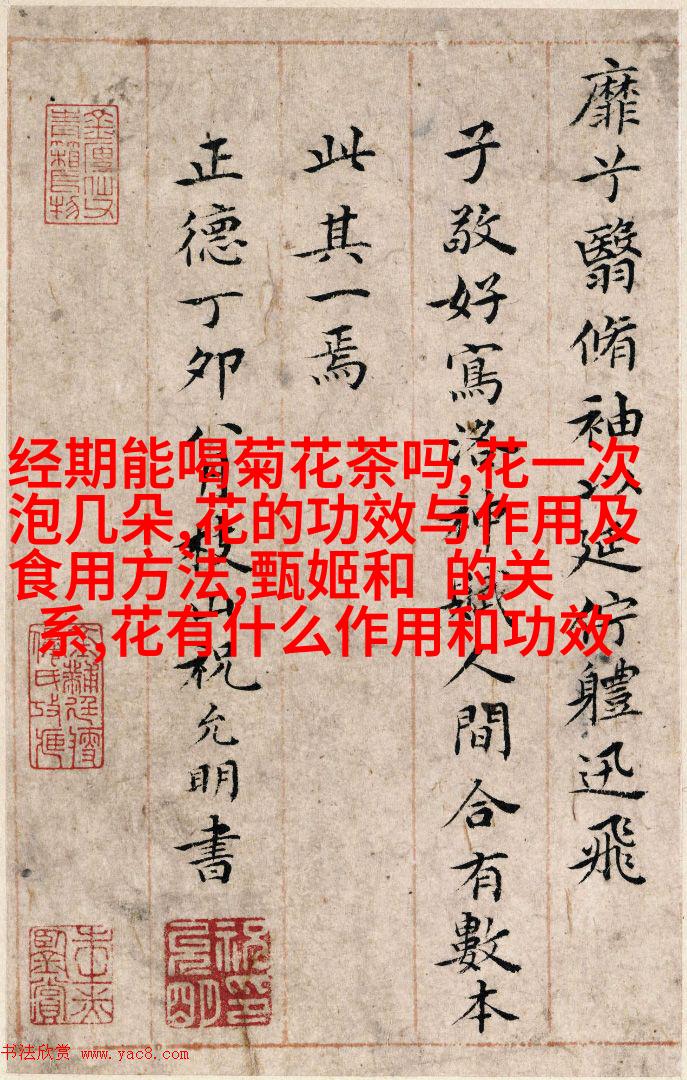 靡兮翳脩袖以延佇體迅飛
子敬好寫洛神賦人間合有數本
此其一焉
正德丁卯八月枝山祝允明書
经期能喝菊花茶吗,花一次
泡几朵,花的功效与作用及
食用方法,甄姬和 的关
系,花有什么作用和功效
书法欣赏 www.yac8.com